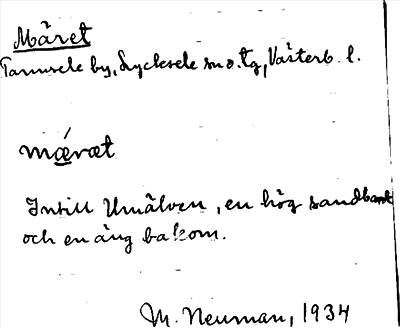 Märet
Tannsele by, Lycksele sn o. tg, Västerb. l.
mǽræt
Intill Umälven, en hög sandbank
och en äng bakom.
M. Neuman, 1934